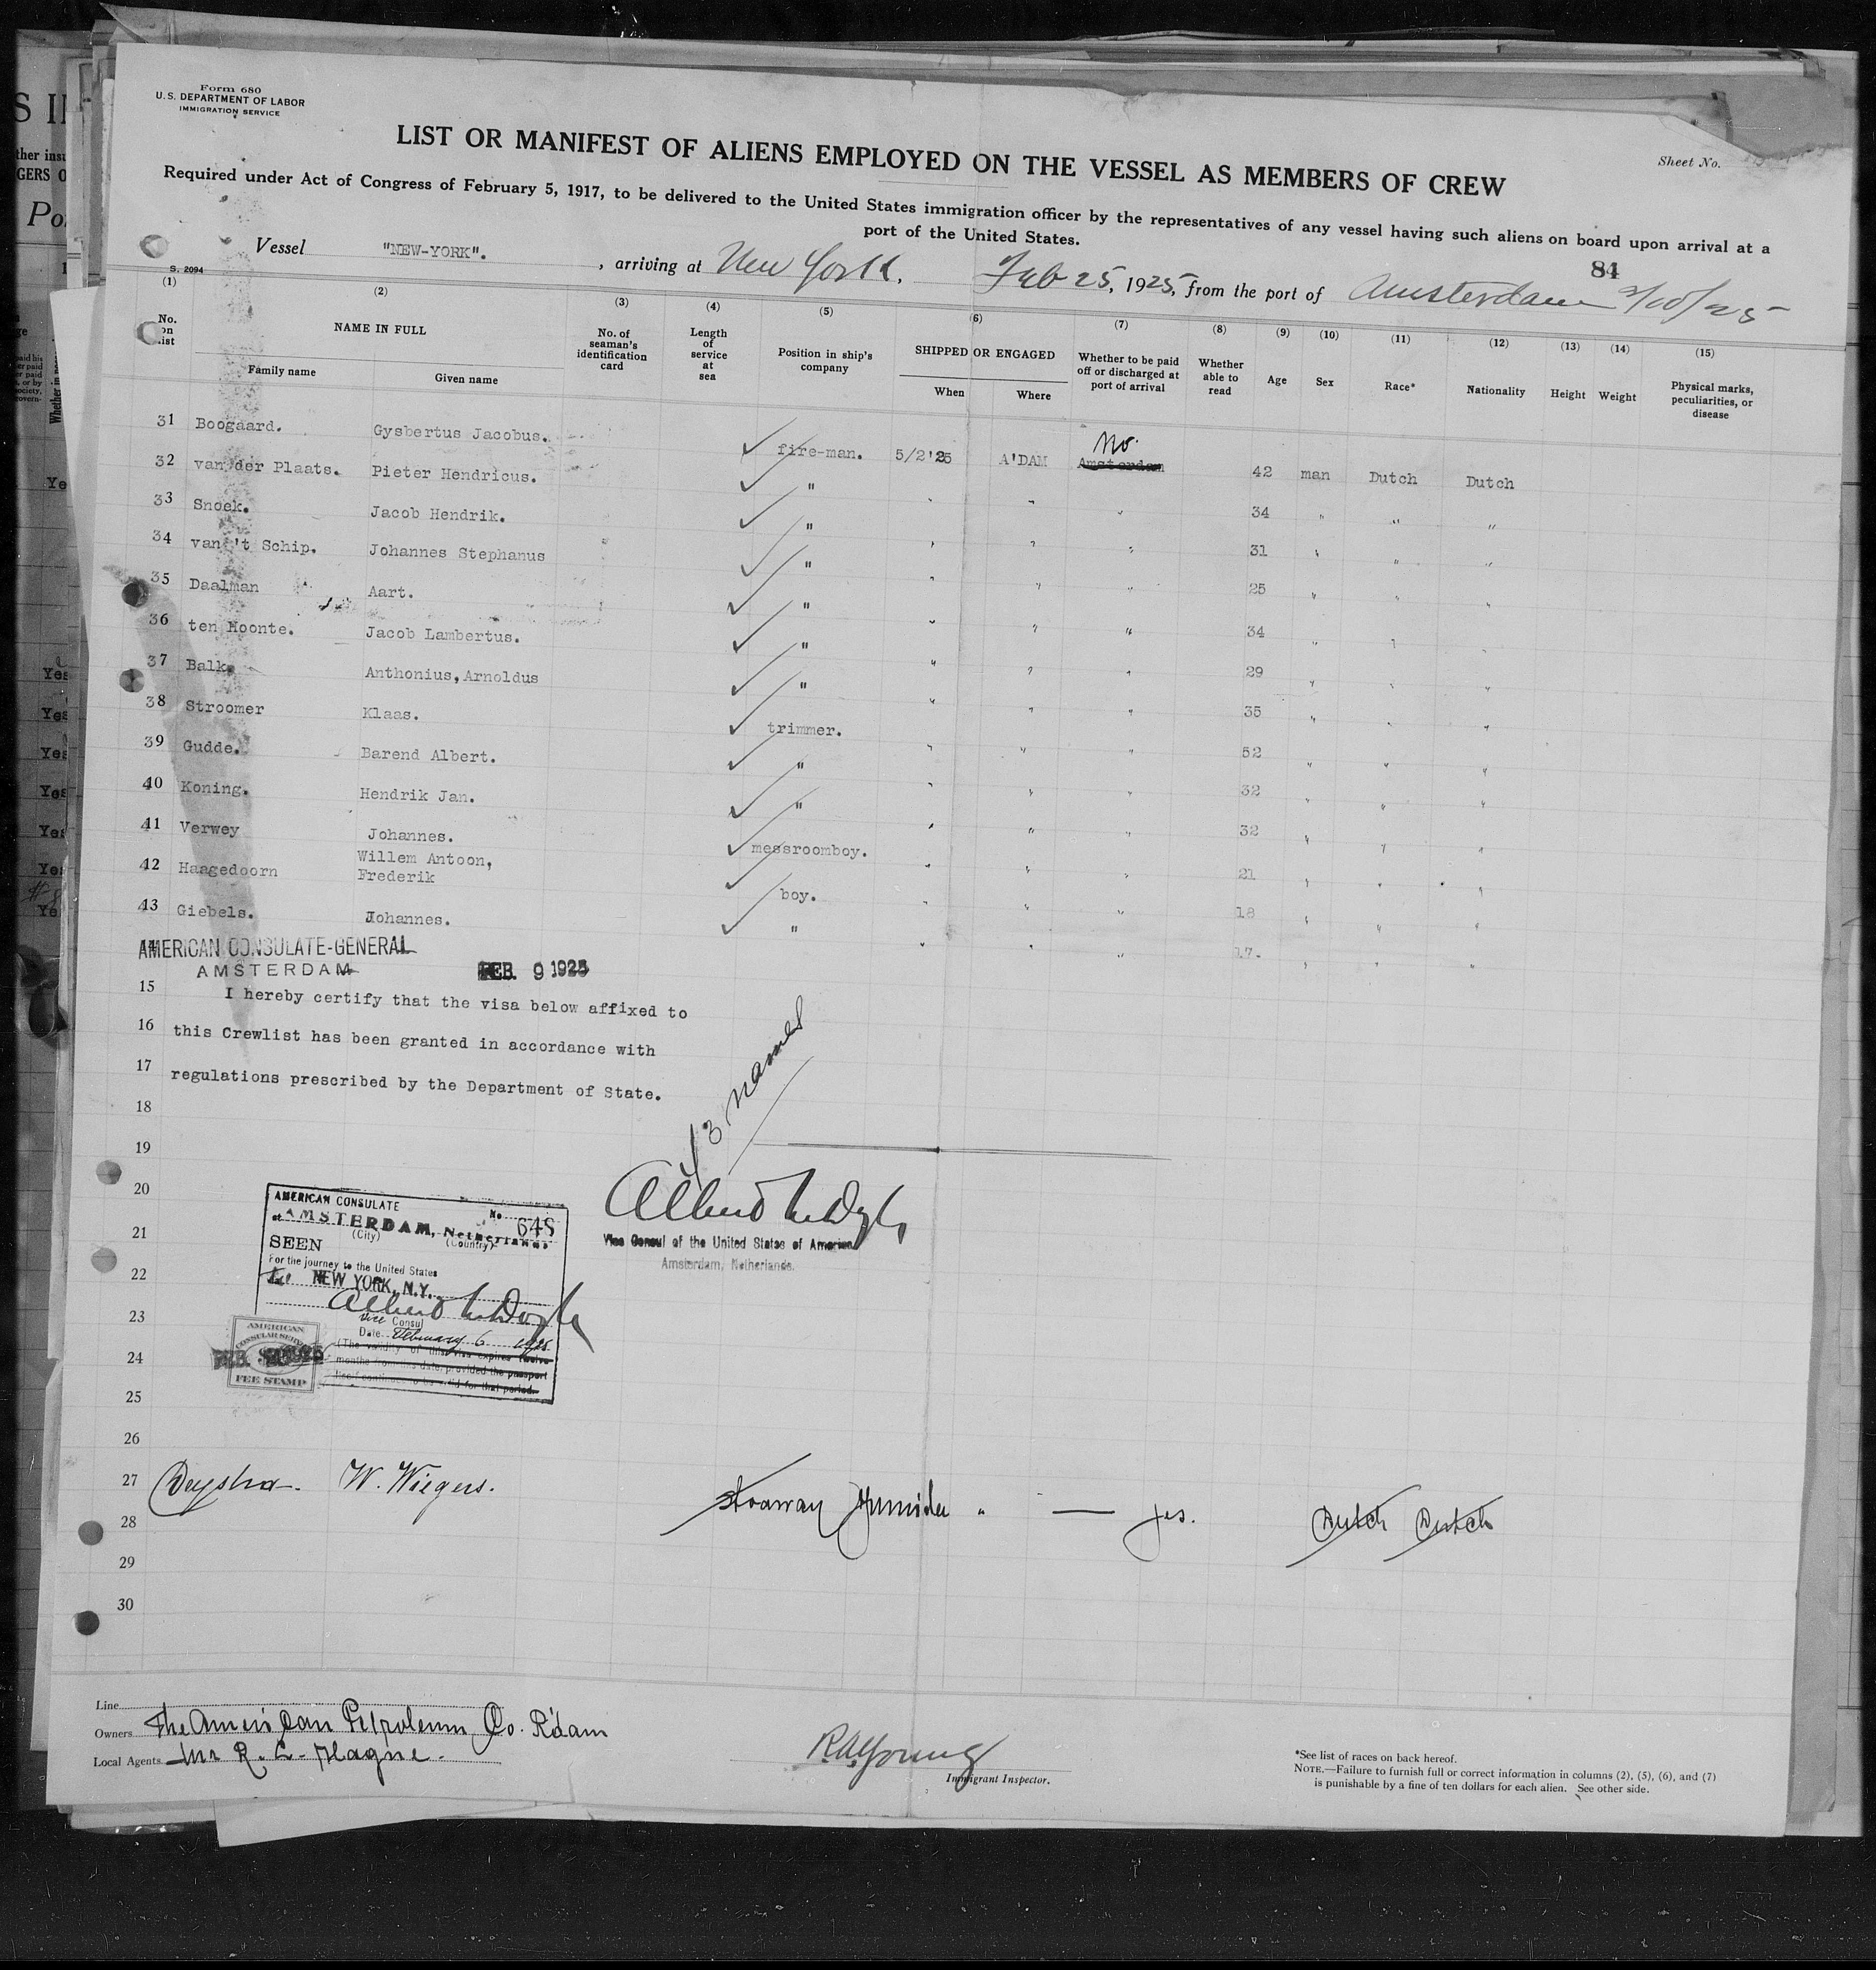 Form 680
U.S. DEPARTMENT OF LABOR
IMMIGRATION SERVICE
LIST OR MANIFEST OF ALIENS EMPLOYED ON THE VESSEL AS MEMBERS OF CREW
Sheet No.
Required under Act of Congress of February 5, 1917, to be delivered to the United States immigration officer by the representatives of any vessel having such aliens on board upon arrival at a
port of the United States.
84
Vessel "NEW-YORK". , arriving at New York, Feb 25, 1925, from the port of Amsterdam
S. 2094
(1) (2) (3) (4) (5) (6) (7) (8) (9) (10) (11) (12) (13) (14) (15)
No. on list NAME IN FULL Family name Given name No. of seaman's identification card Length of service at sea Position in ship's company SHIPPED OR ENGAGED When Where Whether to be paid off or discharged at port of arrival Whether able to read Age Sex Race* Nationality Height Weight Physical marks, peculiarities, or disease
31 Boogaard. Gysbertus Jacobus. fire-man. 5/2'25 A'DAM No. Amsterdam 42 man Dutch Dutch
32 van der Plaats. Pieter Hendricus. " " " " 34 " " "
33 Snoek. Jacob Hendrik. " " " " 31 " " "
34 van 't Schip. Johannes Stephanus " " " " 25 " " "
35 Daalman Aart. " " " " 34 " " "
36 ten Hoonte. Jacob Lambertus. " " " " 29 " " "
37 Balk. Anthonius, Arnoldus " " " " 35 " " "
38 Stroomer Klaas. trimmer. " " " 52 " " "
39 Gudde. Barend Albert. " " " " 32 " " "
40 Koning. Hendrik Jan. " " " " 32 " " "
41 Verwey Johannes. messroomboy. " " " 21 " " "
42 Haagedoorn Willem Antoon, Frederik boy. " " " 18 " " "
43 Giebels. Johannes. " " " " 17. " " "
AMERICAN CONSULATE-GENERAL
AMSTERDAM FEB. 9 1925
15 I hereby certify that the visa below affixed to
16 this Crewlist has been granted in accordance with
17 regulations prescribed by the Department of State.
18
43 names
19
20
21
22
23
24
25
26
AMERICAN CONSULATE
at AMSTERDAM, Netherlands No 648
(City) (Country)
SEEN
For the journey to the United States
NEW YORK, N.Y.
Vice Consul
Date February 6 1925
(The validity of this visa expires twelve
months from this date, provided the passport
itself continues to be valid for that period.
AMERICAN
CONSULAR SERVICE
FEE STAMP
Vice Consul of the United States of America
Amsterdam, Netherlands.
27 W. Wiegers. stoaway " — yes. Dutch Dutch
28
29
30
Line
Owners The American Petroleum Co. R'dam
Local Agents Mr R. L. Hague.
R A Young
Immigrant Inspector.
*See list of races on back hereof.
NOTE.—Failure to furnish full or correct information in columns (2), (5), (6), and (7)
is punishable by a fine of ten dollars for each alien. See other side.